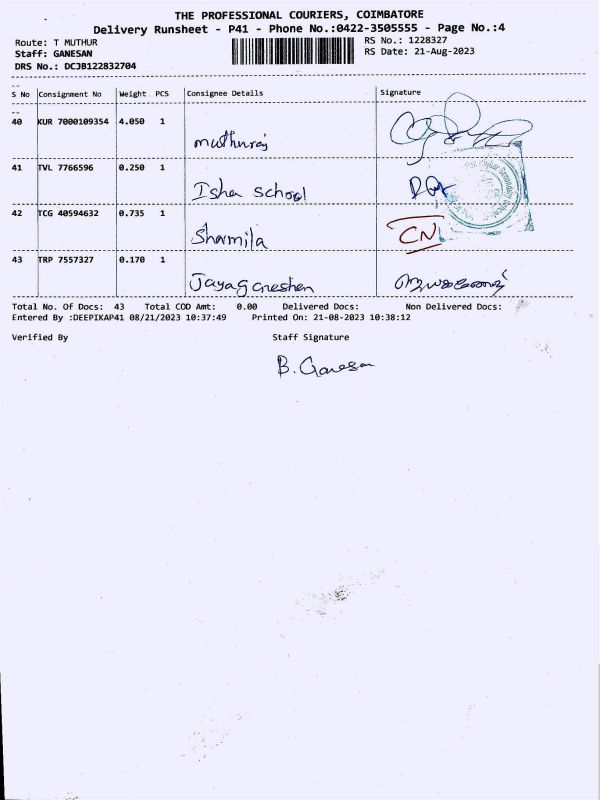 THE PROFESSIONAL COURIERS, COIMBATORE
Delivery Runsheet - P41 - Phone No.:0422-3505555 - Page No.:4
Route: T MUTHUR RS No.: 1228327
Staff: GANESAN RS Date: 21-Aug-2023
DRS No.: DCJB122832704
S No Consignment No Weight PCS Consignee Details Signature
40 KUR 7000109354 4.050 1 muthuraj
41 TVL 7766596 0.250 1 Isha School
42 TCG 40594632 0.735 1 Sharmila CN
43 TRP 7557327 0.170 1 Jayaganeshen
Total No. Of Docs: 43 Total COD Amt: 0.00 Delivered Docs: Non Delivered Docs:
Entered By :DEEPIKAP41 08/21/2023 10:37:49 Printed On: 21-08-2023 10:38:12
Verified By Staff Signature
B. Ganesan